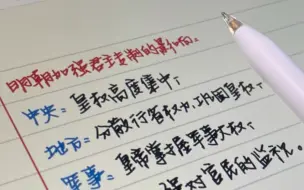 明朝加强君主专制的影响。
中央：皇权高度集中，
地方：分散行省权力，巩固皇权，
军事：皇帝掌握军事大权，
强对官民的监视。